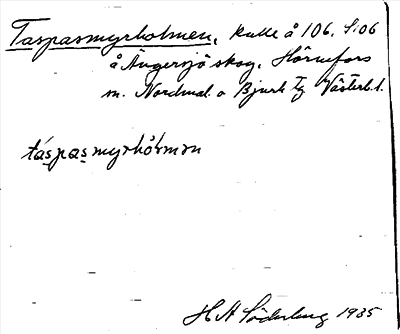 Taspasmyrholmen, kulle å 106. S:06
å Ängersjö skog, Hörnefors
sn. Nordmal. o Bjurh. tg Västerb. l.
táspasmyrhòlmən
H A Söderberg 1935